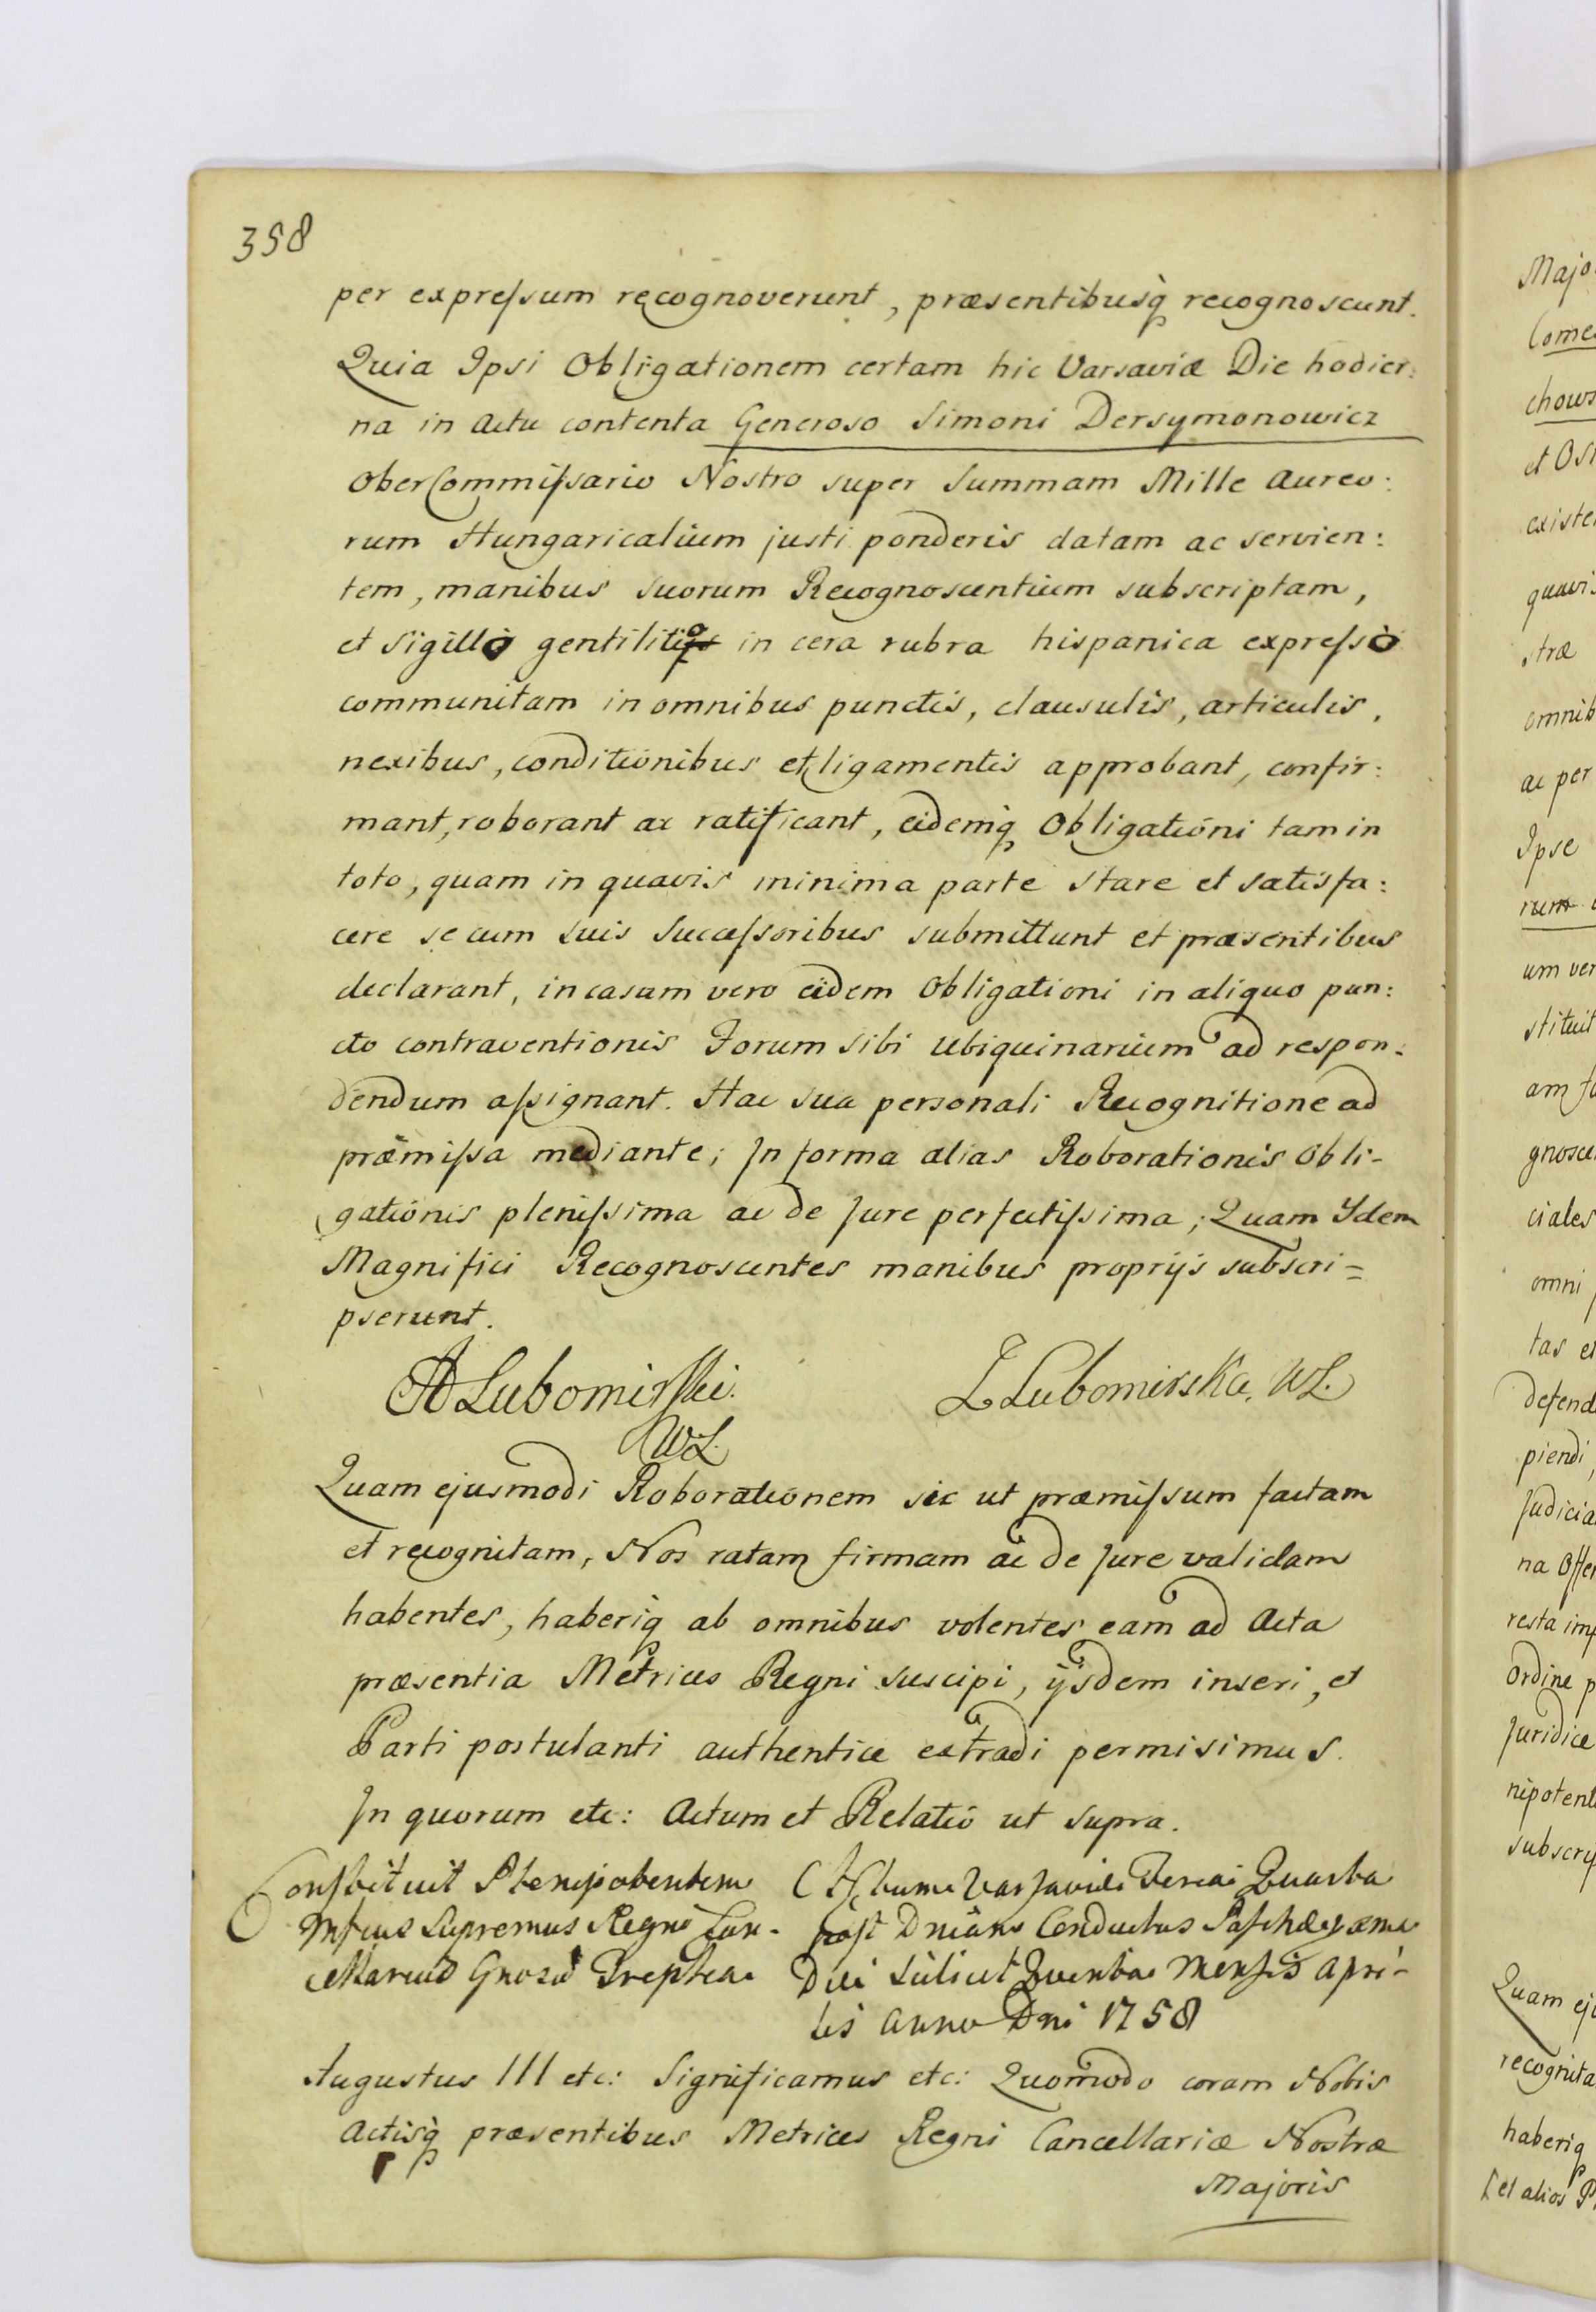 358
per expressum recognoverunt, præsentibusq̀ recognoscunt.
Quia Ipsi Obligationem certam hic Varsaviæ Die hodier:
na in Actu contenta Generoso Simoni Dersymonowicz
OberCommissario Nostro super Summam Mille Aureo:
rum Hungaricalium justi ponderis datam ac servien:
tem, manibus suorum Recognoscentium subscriptam,
et Sigillò gentilitio in cera rubra hispanica expressò
communitam in omnibus punctis, clausulis, articulis,
nexibus, conditionibus et ligamentis approbant, confir:
mant, roborant ac ratificant, eidemq̀ Obligationi tam in
toto, quam in quavis minima parte stare et satisfa:
cere se cum suis Successoribus submittunt et præsentibus
declarant, in casum vero eidem Obligationi in aliquo pun:
cto contraventionis Forum sibi Ubiquinarium ad respon:
dendum assignant. Hac sua personali Recognitione ad
præmissa mediante; In forma alias Roborationis Obli-
gationis plenissima ac de Jure perfectissima; Quam Ydem
Magnifici Recognoscentes manibus proprijs subscri=
pserunt.
A Lubomirski. L Lubomirska. WL.
WL.
Quam ejusmodi Roborationem sic ut præmissum factam
et recognitam, Nos ratam firmam ac de Jure validam
habentes, haberiq̀ ab omnibus volentes eam ad Acta
præsentia Metrices Regni suscipi, ijsdem inseri, et
Parti postulanti authentice extradi permisimus.
In quorum etc: Actum et Relatio ut supra.
Constituit Plenipotentem Actum Varsaviæ Feria Quarta
Mfcus Supremus Regni Can- post Dnicam Conductus Paschæ
cellarius Gnosū Die scilicet Quinta Mensis Apri-
lis Anno Dni 1758
Augustus III etc: Significamus etc: Quomodo coram Nobis
Actisq̀ præsentibus Metrices Regni Cancellariæ Nostræ
Majoris